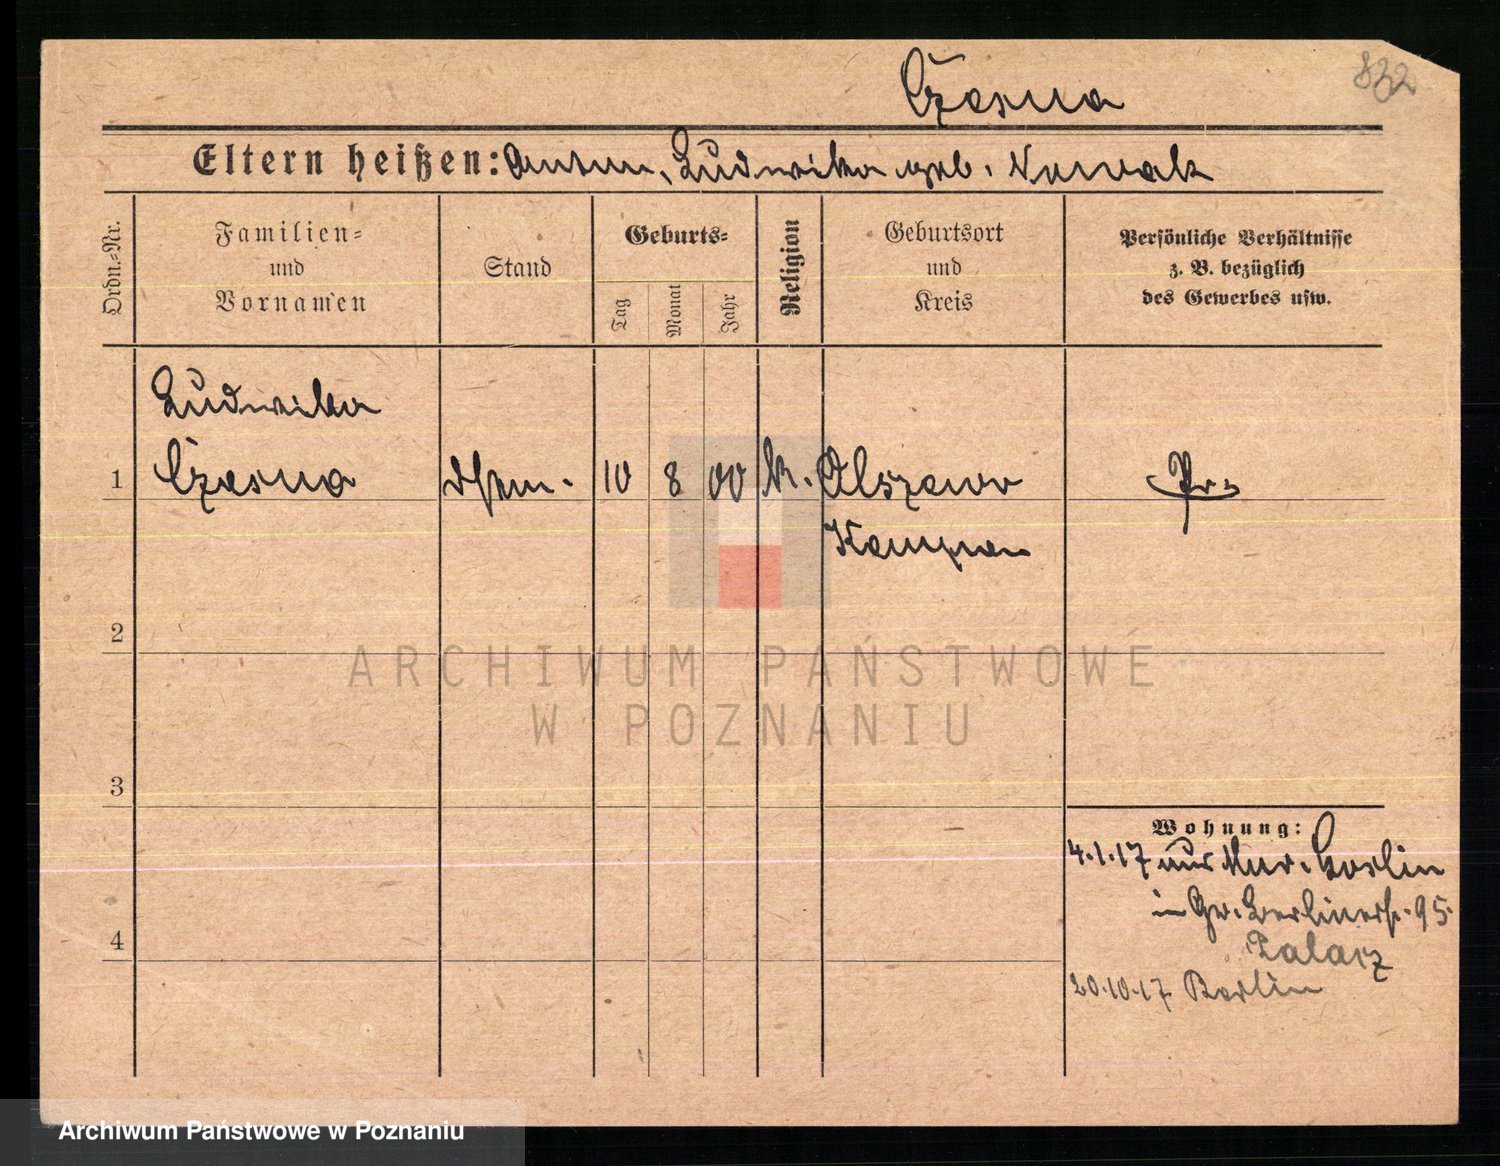 832
Czosna
Eltern heißen: Anton, Ludwika geb. Nowak
Ordn.-Nr.
Familien- und Vornamen
Stand
Geburts-
Tag
Monat
Jahr
Religion
Geburtsort und Kreis
Persönliche Verhältnisse z. B. bezüglich des Gewerbes usw.
Ludwika
1 Czosna 10 8 00 k. Olszowo Pr.
Kempen
2
3
4
Wohnung:
4.1.17 aus Berlin
in Gr. Berlinerstr. 95.
Palacz
20.10.17 Berlin
ARCHIWUM PAŃSTWOWE
W POZNANIU
Archiwum Państwowe w Poznaniu